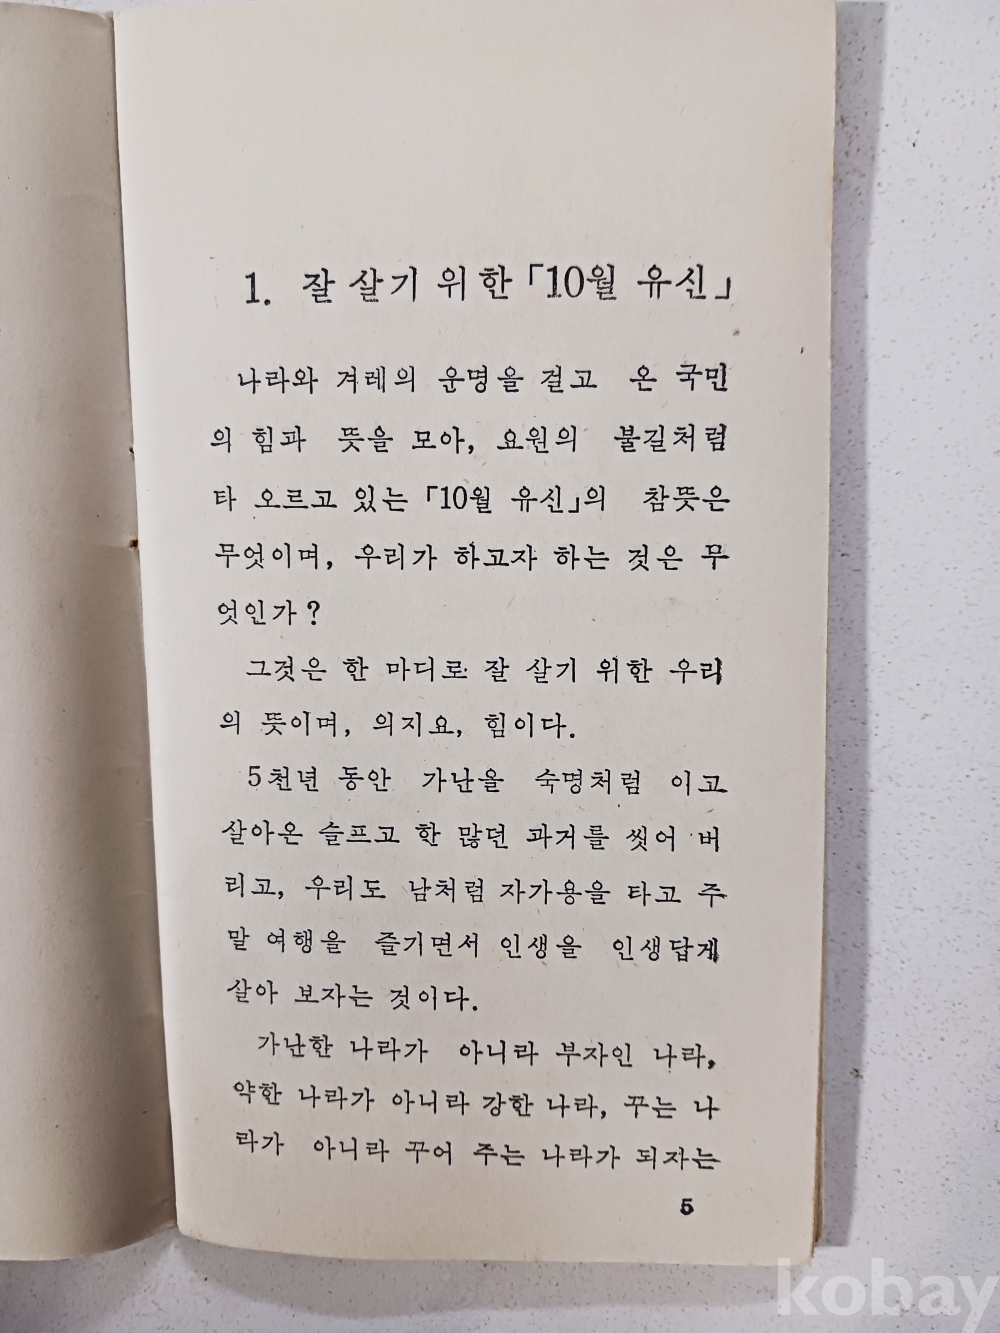 1. 잘 살기 위한 「10월 유신」
나라와 겨레의 운명을 걸고 온 국민
의 힘과 뜻을 모아, 요원의 불길처럼
타 오르고 있는 「10월 유신」의 참뜻은
무엇이며, 우리가 하고자 하는 것은 무
엇인가?
그것은 한 마디로 잘 살기 위한 우리
의 뜻이며, 의지요, 힘이다.
5천년 동안 가난을 숙명처럼 이고
살아온 슬프고 한 많던 과거를 씻어 버
리고, 우리도 남처럼 자가용을 타고 주
말 여행을 즐기면서 인생을 인생답게
살아 보자는 것이다.
가난한 나라가 아니라 부자인 나라,
약한 나라가 아니라 강한 나라, 꾸는 나
라가 아니라 꾸어 주는 나라가 되자는
5
kobay